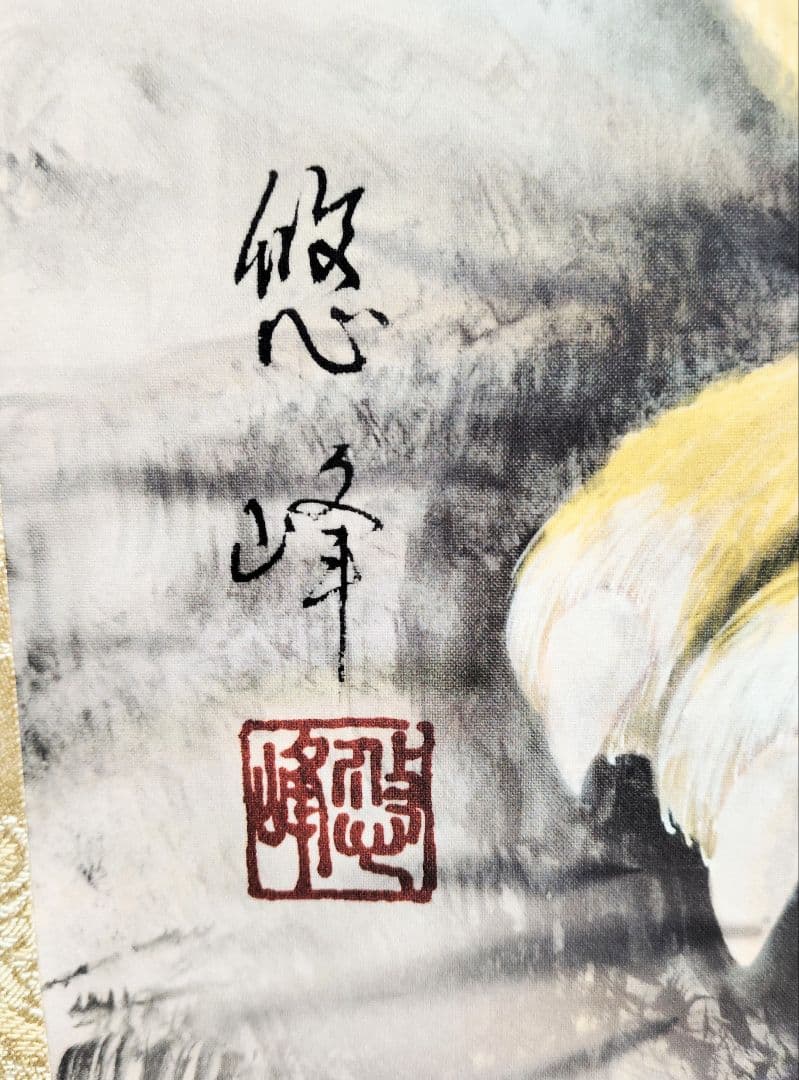 悠峰
悠峰